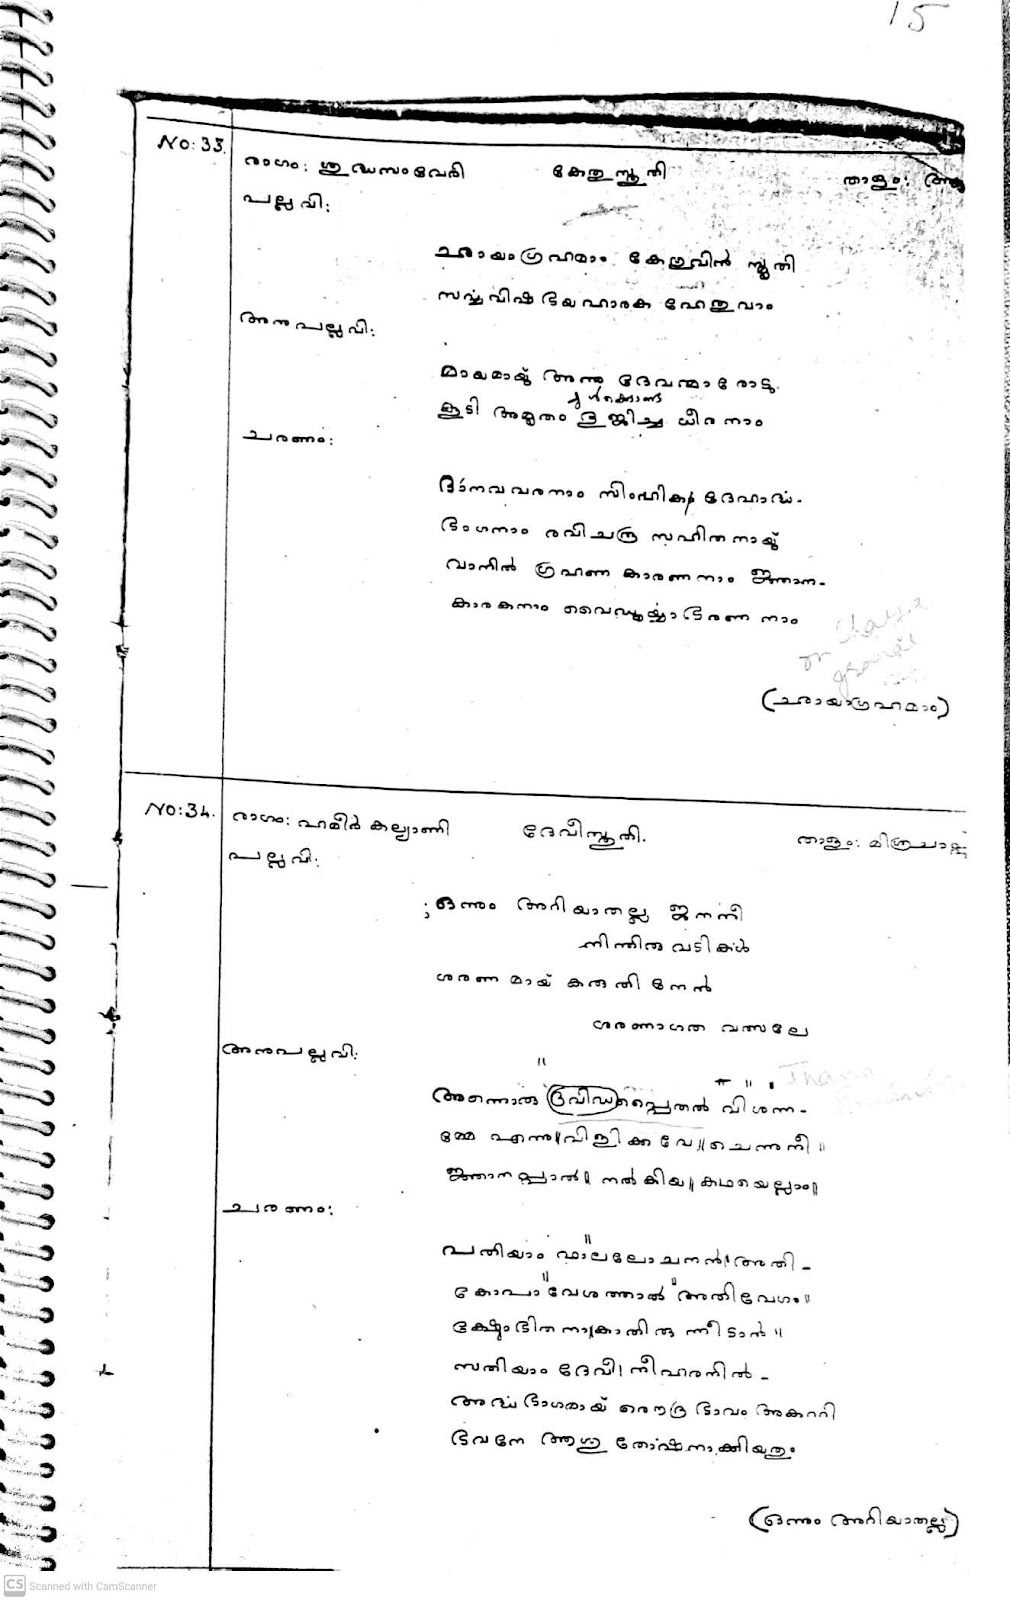 15
No: 33.
രാഗം: ശുദ്ധസാവേരി കേതുസ്തുതി താളം:
പല്ലവി:
ഛായാഗ്രഹമാം കേതുവിൻ സ്തുതി
സർവ്വവിഷഭയഹാരക ഹേതുവാം
അനുപല്ലവി:
മായമായ് അന്നു ദേവന്മാരോടു
കൂടി അമൃതം ഭുജിച്ച ധീരനാം
ചരണം:
ദാനവവരനാം സിംഹികാ ദേഹാർദ്ധ-
ഭംഗനാം രവിചന്ദ്ര സഹിതനായ്
വാനിൽ ഗ്രഹണ കാരണനാം ജ്ഞാന-
കാരകനാം വൈഡൂര്യാഭരണനാം
(ഛായാഗ്രഹമാം)
No: 34.
രാഗം: ഹമീർ കല്യാണി ദേവീസ്തുതി. താളം: മിശ്രചാപ്പ്
പല്ലവി:
; ഒന്നും അറിയാതല്ല ജനനീ
നിന്തിരുവടികൾ
ശരണമായ് കരുതിനേൻ
ശരണാഗത വത്സലേ
അനുപല്ലവി:
അന്നൊരു ദ്രവിഡപ്പൈതൽ വിശന്ന-
മ്മേ എന്നു വിളിക്കവേ ചെന്നു നീ
ജ്ഞാനപ്പാൽ നൽകിയ കഥയെല്ലാം
ചരണം:
പതിയാം ഫാലലോചനൻ അതി-
കോപാവേശത്താൽ അതിവേഗം
സതിയാം ദേവീ നീ ഹരനിൽ-
അർദ്ധഭാഗമായ് രൌദ്രഭാവം അകററി
ഭവനേ ആശുതോഷനാക്കിയതും
(ഒന്നും അറിയാതല്ല)
CS Scanned with CamScanner